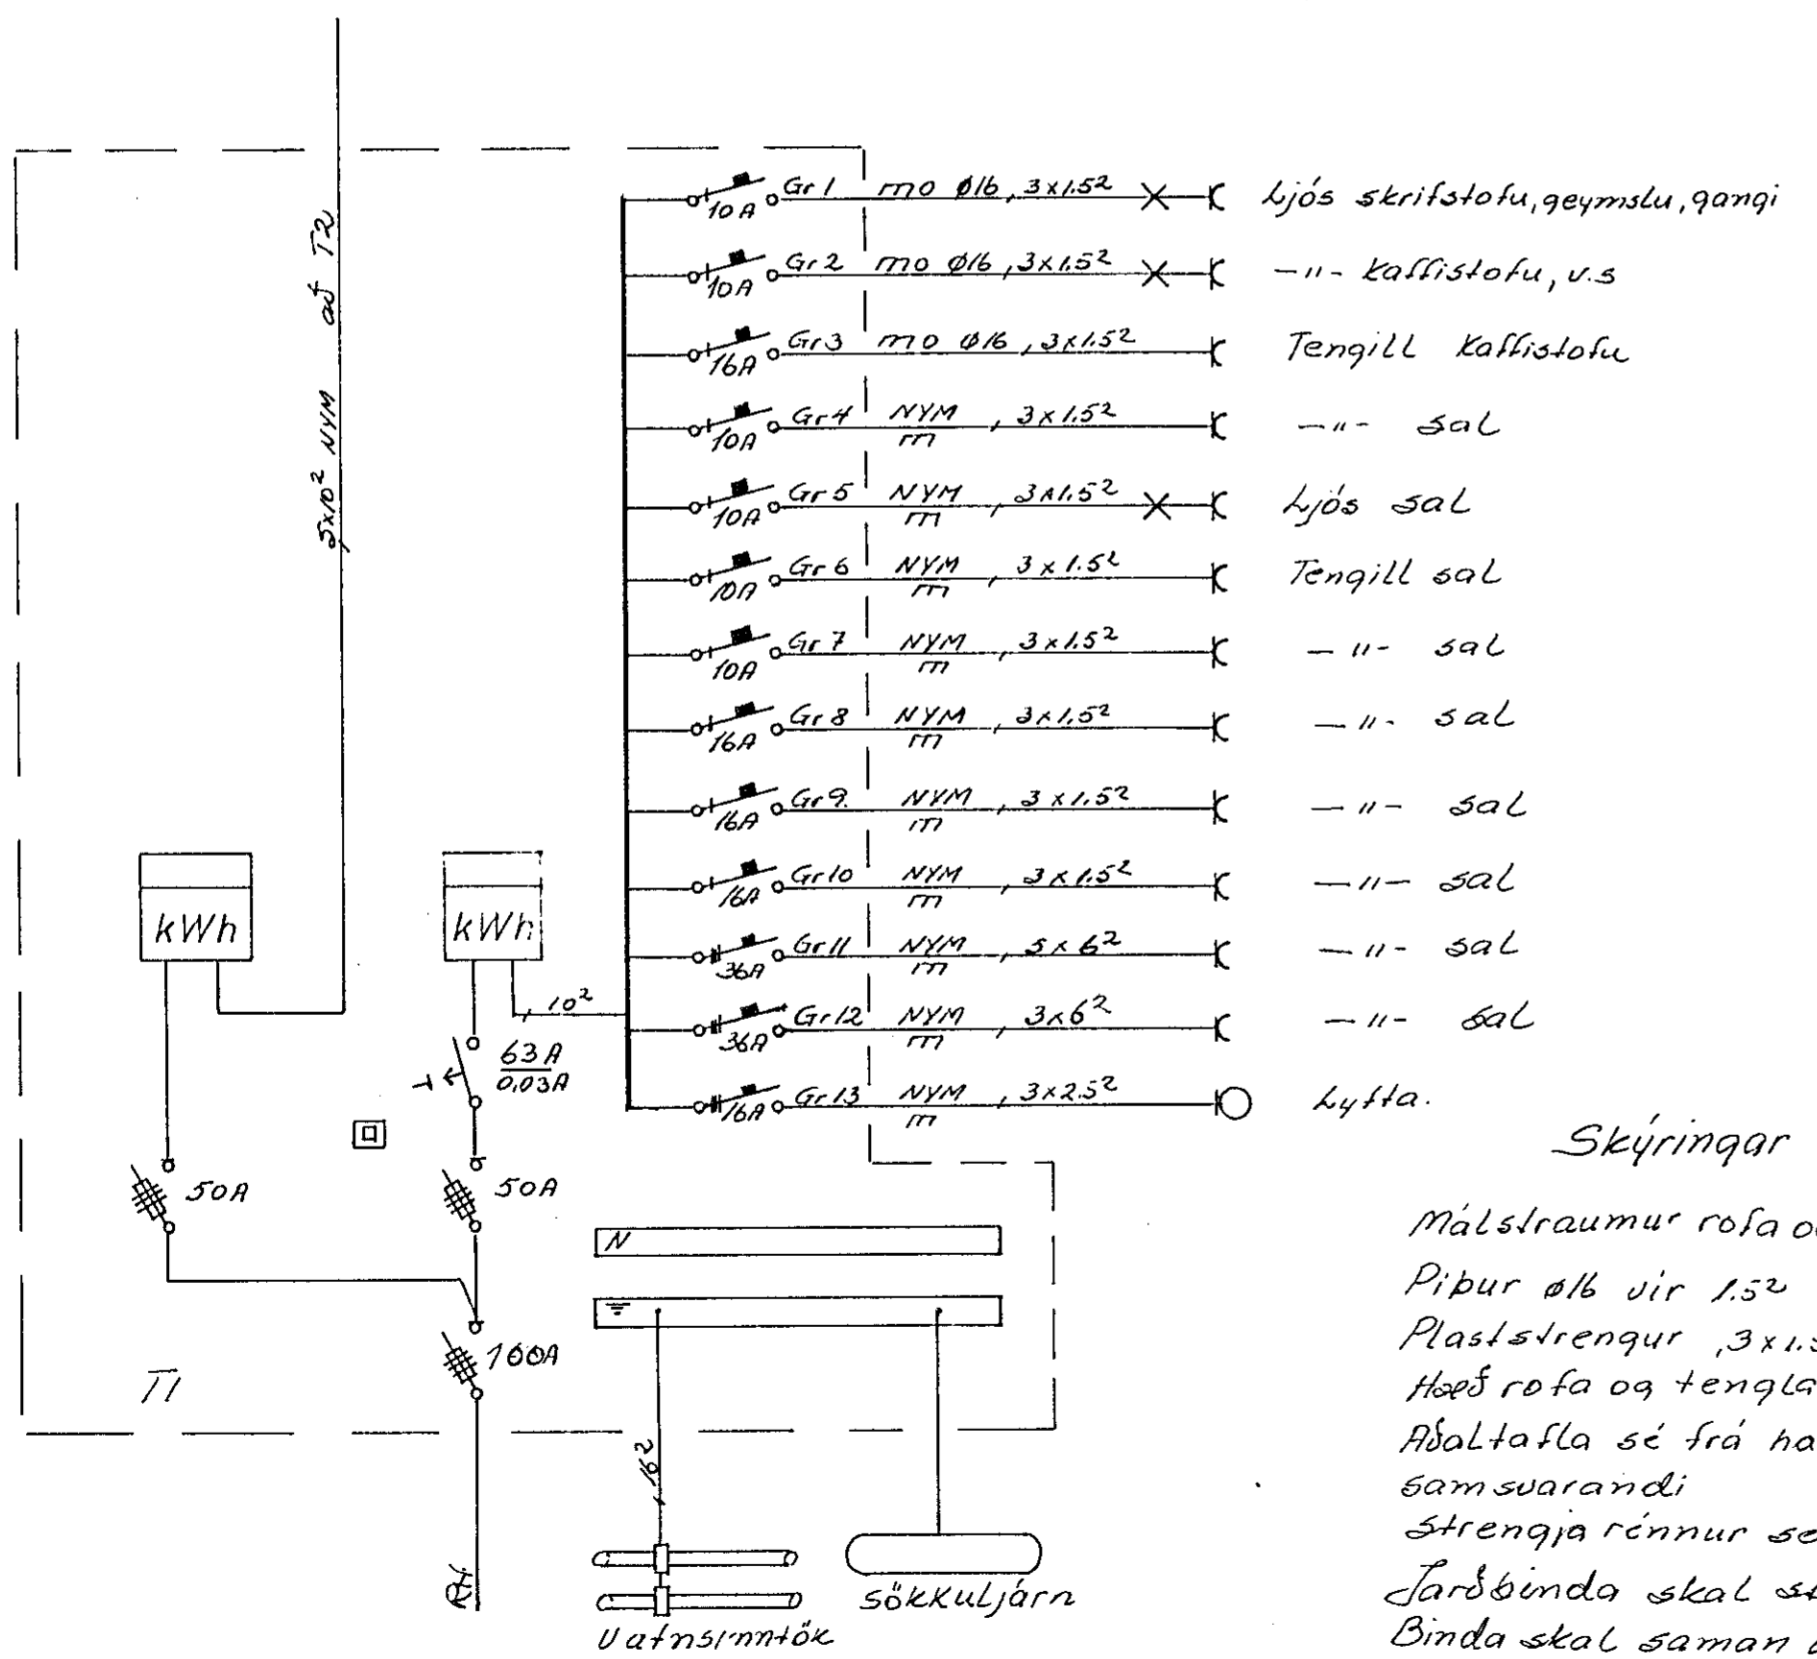 5x10² NYM að T2
10A Gr 1 mo ø16, 3x1.5² Ljós skrifstofu, geymslu, gangi
10A Gr 2 mo ø16, 3x1.5² -"- Kaffistofu, v.s
16A Gr 3 mo ø16, 3x1.5² Tengill Kaffistofu
10A Gr 4 NYM m, 3x1.5² -"- sal
10A Gr 5 NYM m, 3x1.5² Ljós sal
10A Gr 6 NYM m, 3x1.5² Tengill sal
10A Gr 7 NYM m, 3x1.5² -"- sal
16A Gr 8 NYM m, 3x1.5² -"- sal
16A Gr 9. NYM m, 3x1.5² -"- sal
16A Gr 10 NYM m, 3x1.5² -"- sal
36A Gr 11 NYM m, 5x6² -"- sal
36A Gr 12 NYM m, 3x6² -"- sal
16A Gr 13 NYM m, 3x2.5² Lyfta.
kWh
kWh
10²
63A
0,03A
50A
50A
N
100A
T1
16²
RH
Vatnsinntök
sökkuljárn
Skýringar
Málstraumur rofa
Pípur ø16 vír 1.5²
Plaststrengur, 3x1.5
Hæð rofa og tengla
Aðaltafla sé frá
samsvarandi
strengja rennur
Jarðbinda skal
Binda skal saman